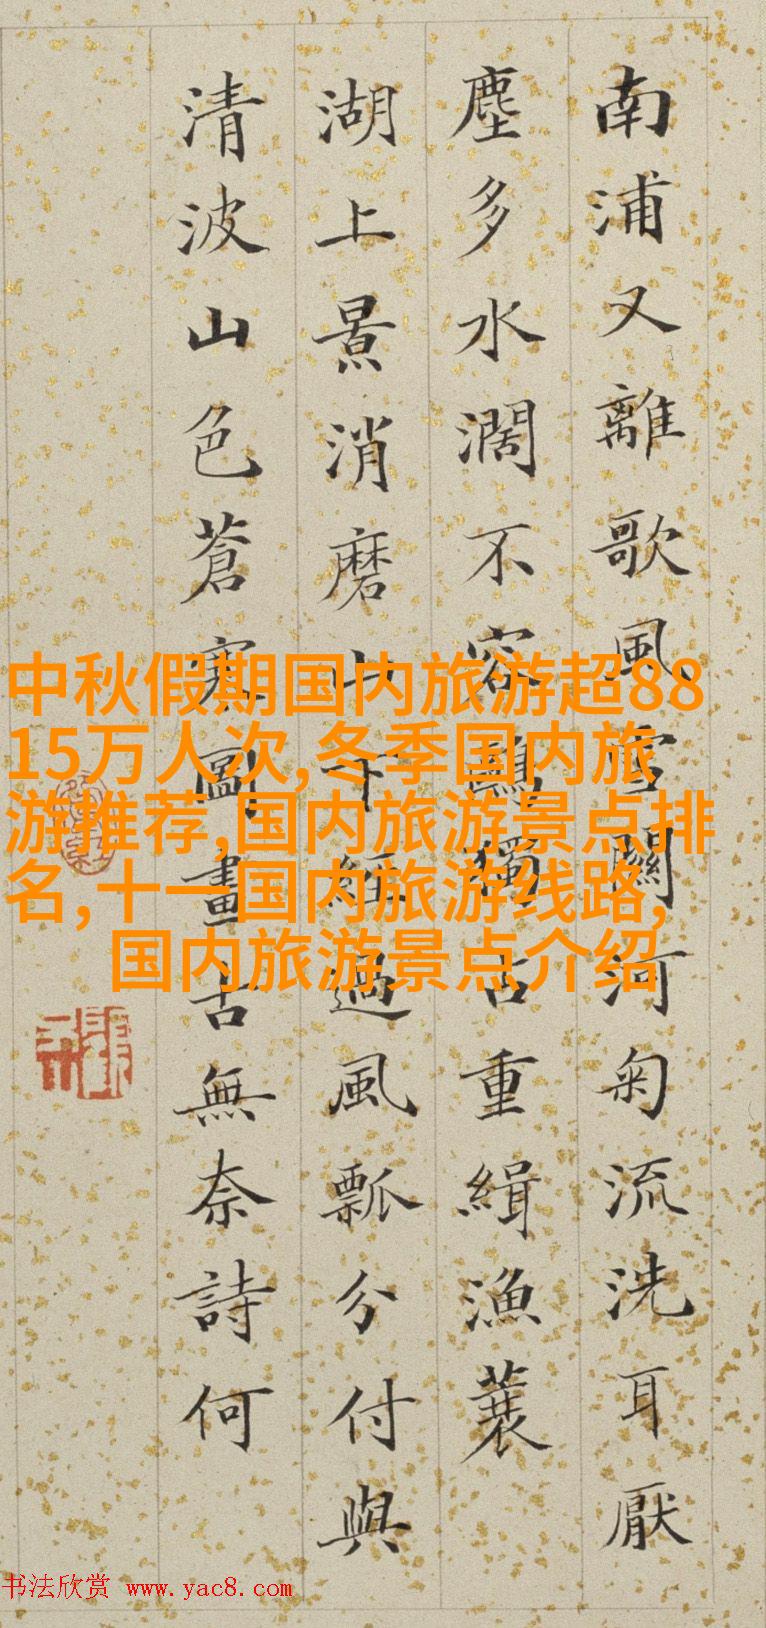 南浦又離歌風雪關河匊流洗耳厭
塵多水濶不容鷗獨古重緝漁蓑
湖上景消磨山下經過風瓢分付與
清波山色蒼寒圖畫古無奈詩何
中秋假期国内旅游超88
15万人次,冬季国内旅
游推荐,国内旅游景点排
名,十一国内旅游线路,
国内旅游景点介绍
书法欣赏 www.yac8.com